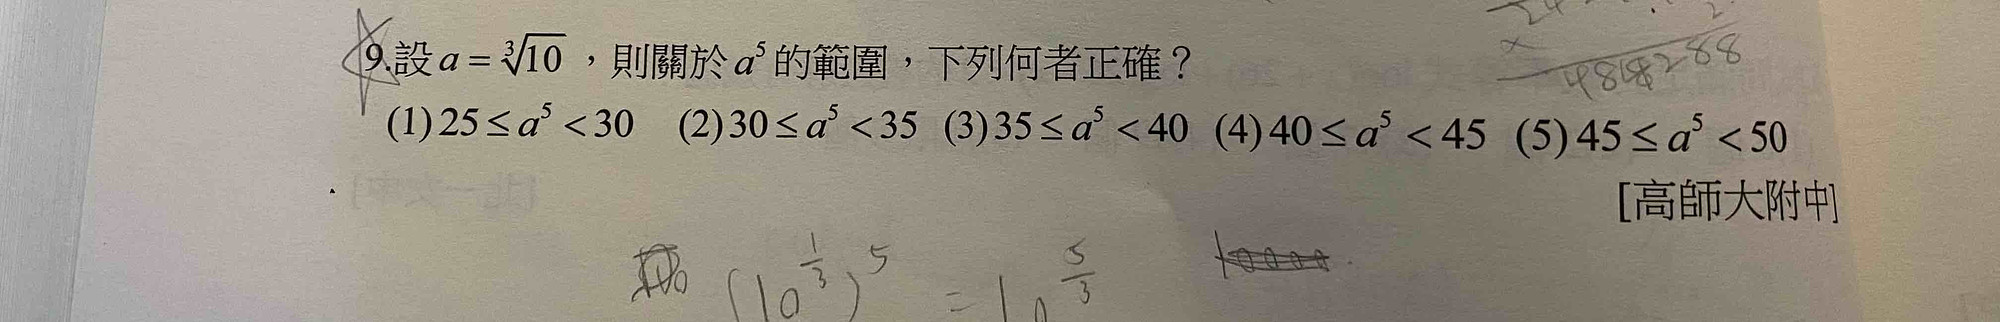 9.設 a = ∛10，則關於 a⁵ 的範圍，下列何者正確？
(1) 25 ≤ a⁵ < 30 (2) 30 ≤ a⁵ < 35 (3) 35 ≤ a⁵ < 40 (4) 40 ≤ a⁵ < 45 (5) 45 ≤ a⁵ < 50
[高師大附中]
(10^(1/3))^5 = 10^(5/3)